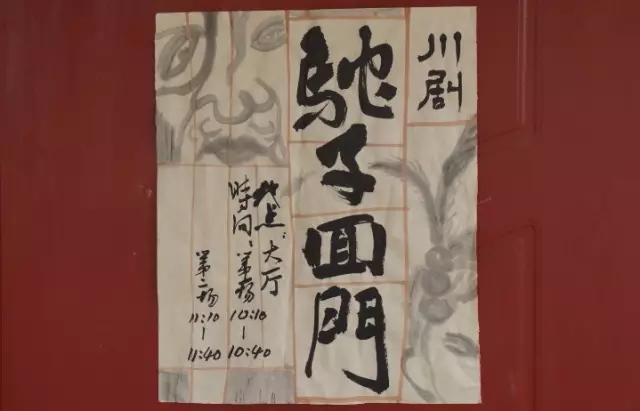 川剧
駝子回門
地点:大厅
時间:第一场
10:10
-
10:40
第二场
11:10
-
11:40